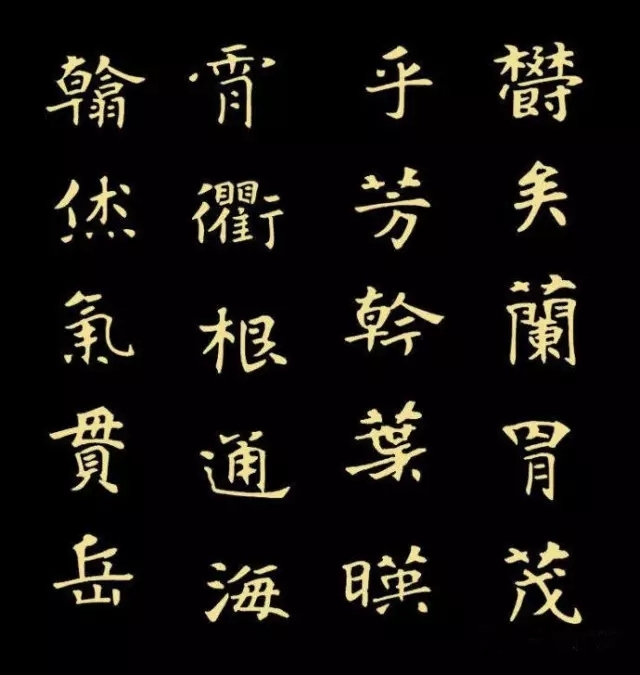 欝矣蘭胄茂
乎芳幹葉暎
霄衢根通海
翰烋氣貫岳